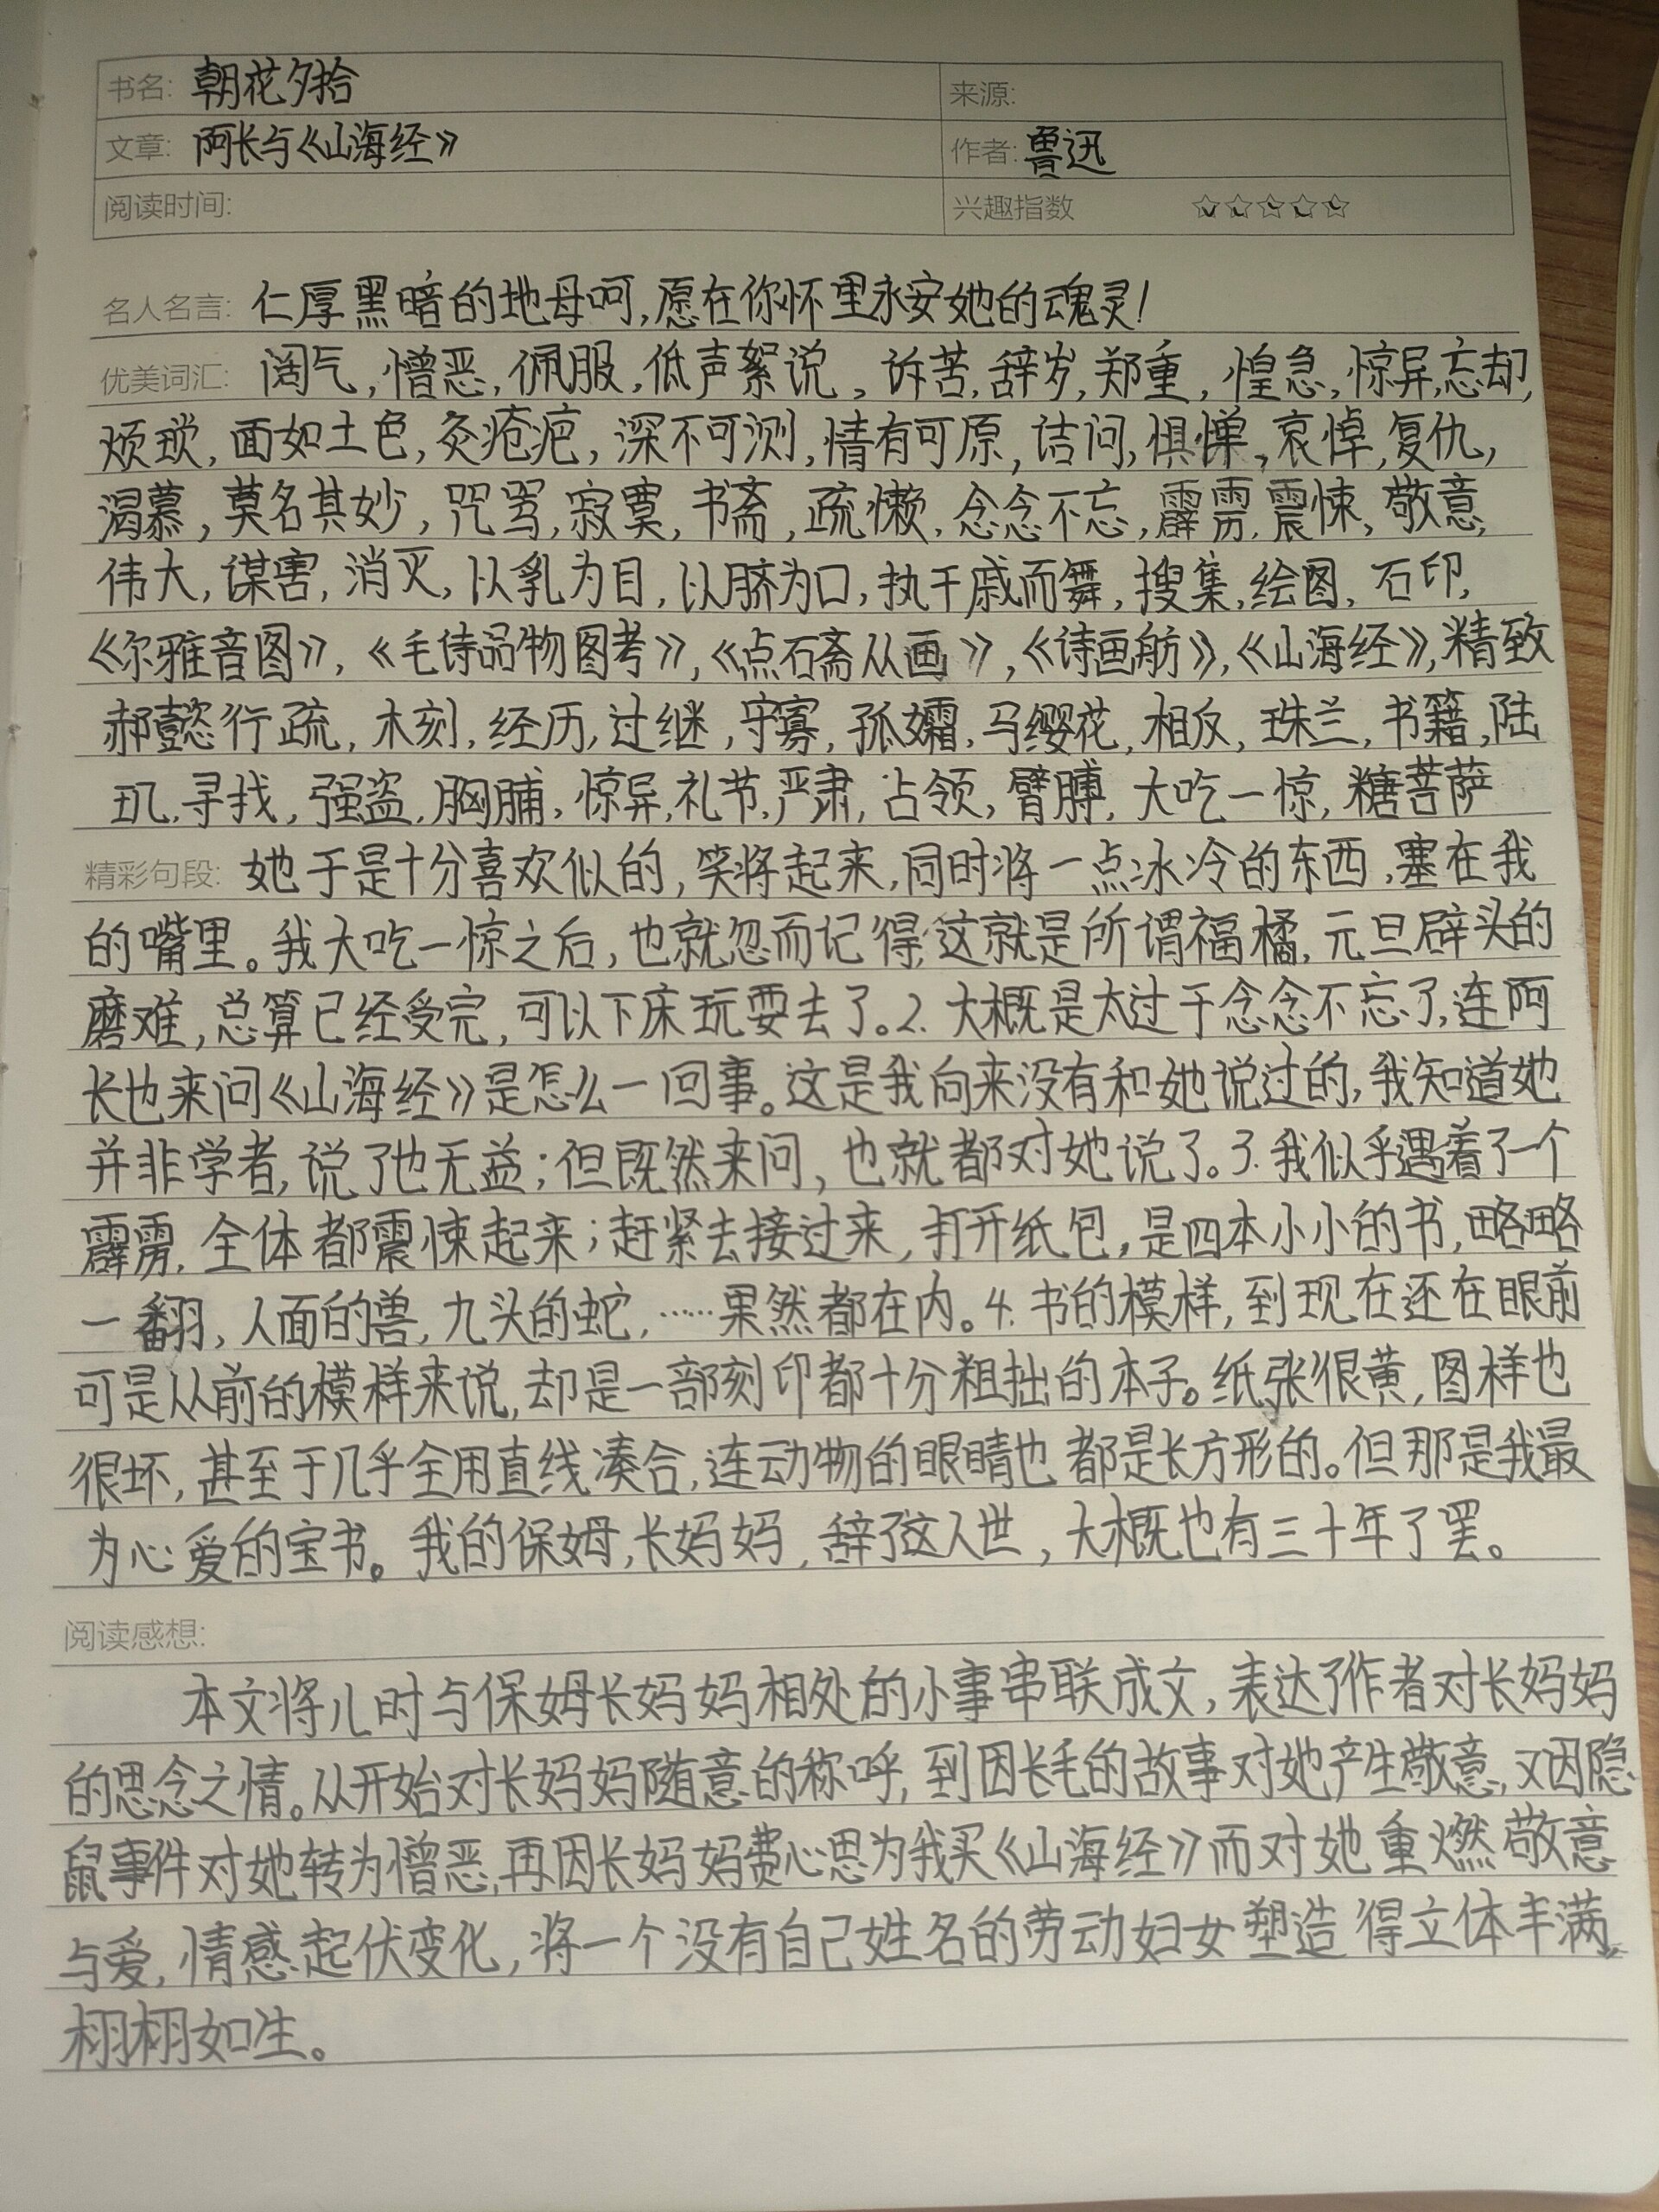 书名: 朝花夕拾 来源:
文章: 阿长与《山海经》 作者: 鲁迅
阅读时间: 兴趣指数 ☆☆☆☆☆
名人名言: 仁厚黑暗的地母呵,愿在你怀里永安她的魂灵!
优美词汇: 阔气,憎恶,佩服,低声絮说,诉苦,辞岁,郑重,惶急,惊异,忘却,
烦琐,面如土色,灸疮疤,深不可测,情有可原,诘问,惧惮,哀悼,复仇,
渴慕,莫名其妙,咒骂,寂寞,书斋,疏懒,念念不忘,霹雳,震悚,敬意,
伟大,谋害,消灭,以乳为目,以脐为口,执干戚而舞,搜集,绘图,石印,
《尔雅音图》,《毛诗品物图考》,《点石斋丛画》,《诗画舫》,《山海经》,精致
郝懿行疏,木刻,经历,过继,守寡,孤孀,马缨花,相反,珠兰,书籍,陆
玑,寻找,强盗,胸脯,惊异,礼节,严肃,占领,臂膊,大吃一惊,糖菩萨
精彩句段: 她于是十分喜欢似的,笑将起来,同时将一点冰冷的东西,塞在我
的嘴里。我大吃一惊之后,也就忽而记得,这就是所谓福橘,元旦辟头的
磨难,总算已经受完,可以下床玩耍去了。2.大概是太过于念念不忘了,连阿
长也来问《山海经》是怎么一回事。这是我向来没有和她说过的,我知道她
并非学者,说了也无益;但既然来问,也就都对她说了。3.我似乎遇着了一个
霹雳,全体都震悚起来;赶紧去接过来,打开纸包,是四本小小的书,略略
一翻,人面的兽,九头的蛇,……果然都在内。4.书的模样,到现在还在眼前
可是从前的模样来说,却是一部刻印都十分粗拙的本子。纸张很黄,图样也
很坏,甚至于几乎全用直线凑合,连动物的眼睛也都是长方形的。但那是我最
为心爱的宝书。我的保姆,长妈妈,辞了这人世,大概也有三十年了罢。
阅读感想:
本文将儿时与保姆长妈妈相处的小事串联成文,表达了作者对长妈妈
的思念之情。从开始对长妈妈随意的称呼,到因长毛的故事对她产生敬意,又因隐
鼠事件对她转为憎恶,再因长妈妈费心思为我买《山海经》而对她重燃敬意
与爱,情感起伏变化,将一个没有自己姓名的劳动妇女塑造得立体丰满,
栩栩如生。